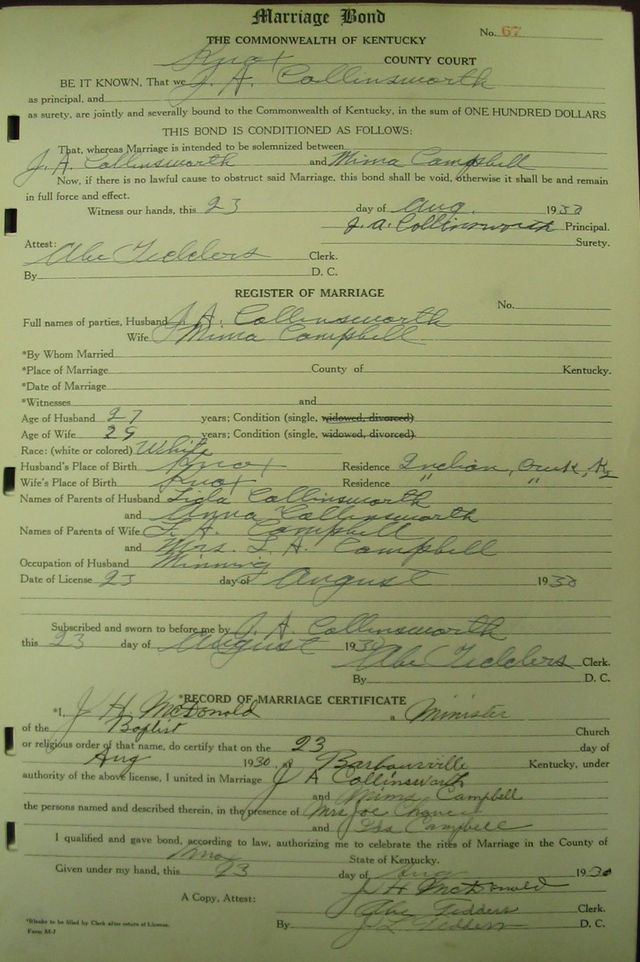 Marriage Bond
No. 67
THE COMMONWEALTH OF KENTUCKY
Knox COUNTY COURT
BE IT KNOWN, That we J. A. Collinsworth
as principal, and
as surety, are jointly and severally bound to the Commonwealth of Kentucky, in the sum of ONE HUNDRED DOLLARS
THIS BOND IS CONDITIONED AS FOLLOWS:
That, whereas Marriage is intended to be solemnized between
J. A. Collinsworth and Mima Campbell
Now, if there is no lawful cause to obstruct said Marriage, this bond shall be void, otherwise it shall be and remain
in full force and effect.
Witness our hands, this 23 day of Aug. 1930
J. A. Collinsworth Principal.
Surety.
Attest:
Abe Tedders Clerk.
By D. C.
REGISTER OF MARRIAGE
No.
Full names of parties, Husband J. A. Collinsworth
Wife Mima Campbell
*By Whom Married
*Place of Marriage County of Kentucky.
*Date of Marriage
*Witnesses and
Age of Husband 27 years; Condition (single, widowed, divorced)
Age of Wife 29 years; Condition (single, widowed, divorced)
Race: (white or colored) White
Husband's Place of Birth Knox Residence Indian, Creek, Ky
Wife's Place of Birth Knox Residence " "
Names of Parents of Husband Collinsworth
and Anna Collinsworth
Names of Parents of Wife A. Campbell
and Mrs. L. A. Campbell
Occupation of Husband Minning
Date of License 23 day of August 1930
Subscribed and sworn to before me by J. A. Collinsworth
this 23 day of August 1930
Abe Tedders Clerk.
By D. C.
*RECORD OF MARRIAGE CERTIFICATE
*I, J H McDonald a Minister
of the Baptist Church
or religious order of that name, do certify that on the 23 day of
Aug 1930, at Barbourville Kentucky, under
authority of the above license, I united in Marriage J A Collinsworth
and Mima Campbell
the persons named and described therein, in the presence of Mrs Joe
and Campbell
I qualified and gave bond, according to law, authorizing me to celebrate the rites of Marriage in the County of
Knox State of Kentucky.
Given under my hand, this 23 day of Aug 1930
J H McDonald
A Copy, Attest: Abe Tedders Clerk.
By Tedders D. C.
*Blanks to be filled by Clerk after return of License.
Form M-1